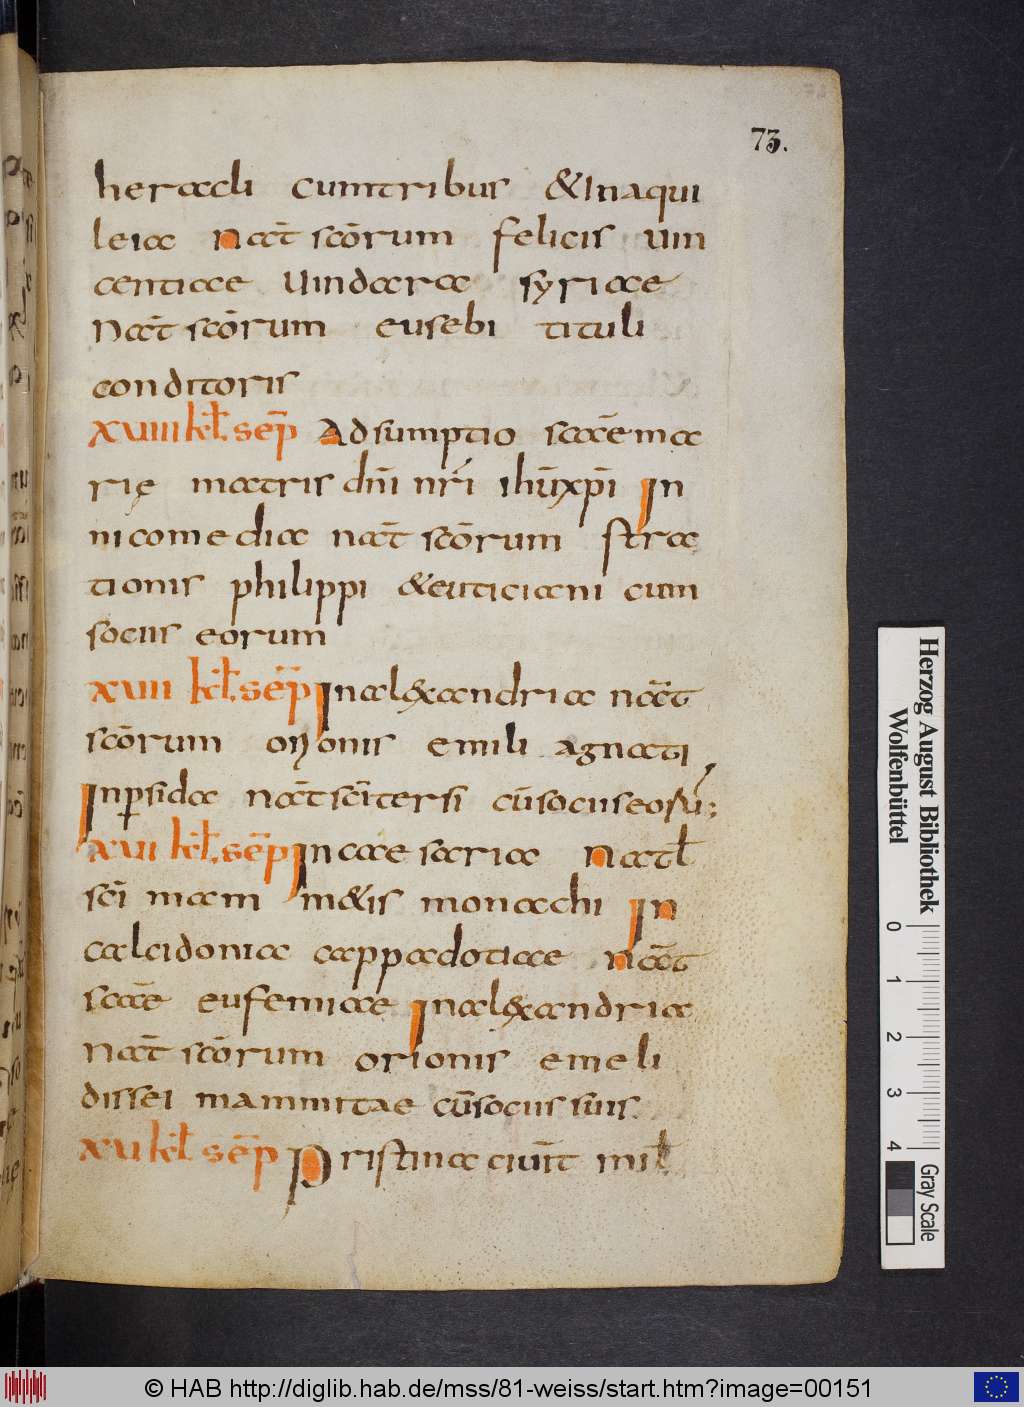 73.
heracli cumtribus &Inaqui
leiae Nat̄ sc̄orum felicis uin
centiae Uindara syriae
Nat̄ sc̄orum eusebi tituli
conditoris
XVIIII kl̄. sep̄ Adsumptio sc̄ae ma
rię matris dn̄i nr̄i ihūxp̄i In
nicomedia nat̄ sc̄orum stra
tionis philippi &euticiani cum
sociis eorum
XVIII kl̄. sep̄ Inalexandria nat̄
sc̄orum orionis emili agnati
Inpersida nat̄ sc̄i tersi cū sociis eorū;
XVI kl̄. sep̄ In caesaria Natl̄
sc̄i mam m&is monachi In
calcidonia cappadotiae nat̄
sc̄ae eufemiae Inalexandria
Nat̄ sc̄orum orionis emeli
dissei mammitae cū sociis suis.
XVI kl̄. sep̄ Pristina ciuit̄ mil̄
Herzog August Bibliothek
Wolfenbüttel
0 1 2 3 4
Gray Scale
© HAB http://diglib.hab.de/mss/81-weiss/start.htm?image=00151